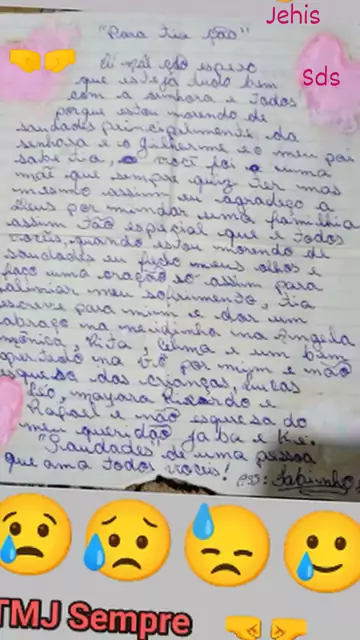 Jehis
Sds
"Para tia São"
Oi mãe eu espero
que esteja tudo bem
com a senhora e todos
porque estou morendo de
saudades principalmente da
senhora e o Guilherme e o meu pai
sabe tia, você foi uma
mãe que sempre quiz ter mas
mesmo assim eu agradeço a
Deus por mandar uma familhia
assim tão especial que é todos
vocês, quando estou morendo de
saudades eu fecho meus olhos e
faço uma oração só assim para
aliniar meu sofrimento, tia
escreve para mim e dar um
abraço na neidinha na Angela
mônica, Rita, Celma e um bem
apertado na vó por mim e não
esqueça das crianças, Lucas
Léo, mayara Ricardo e
Rafael e não esqueça do
meu queridão
"Saudades de uma pessoa
que ama todos vocês!
TMJ Sempre